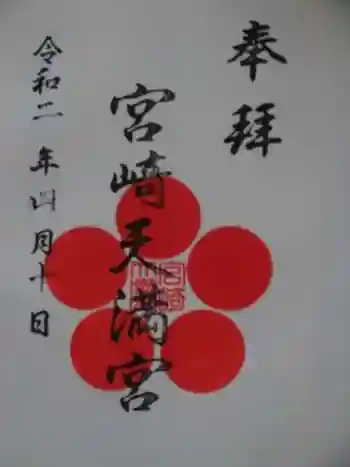 奉拝
宮崎天満宮
令和二年四月十日